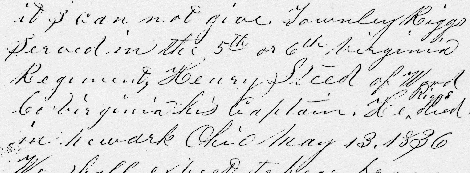 it I can not give. Townley Riggs
Served in the 5th or 6th Virginia
Regiment, Henry Steed of Wood
Co Virginia his Captain. He Riggs died
in Newark Ohio May 13. 1836
We shall expect to hear